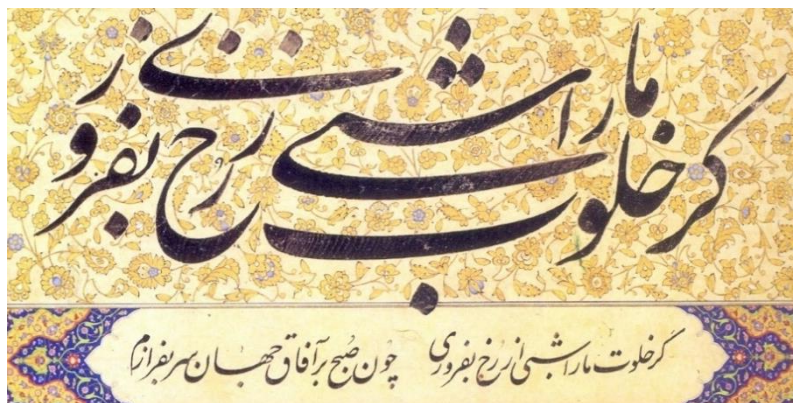 گر خلوت ما را شبی از رخ بفروزی
گر خلوت ما را شبی از رخ بفروزی چون صبح بر آفاق جهان سر بفرازم